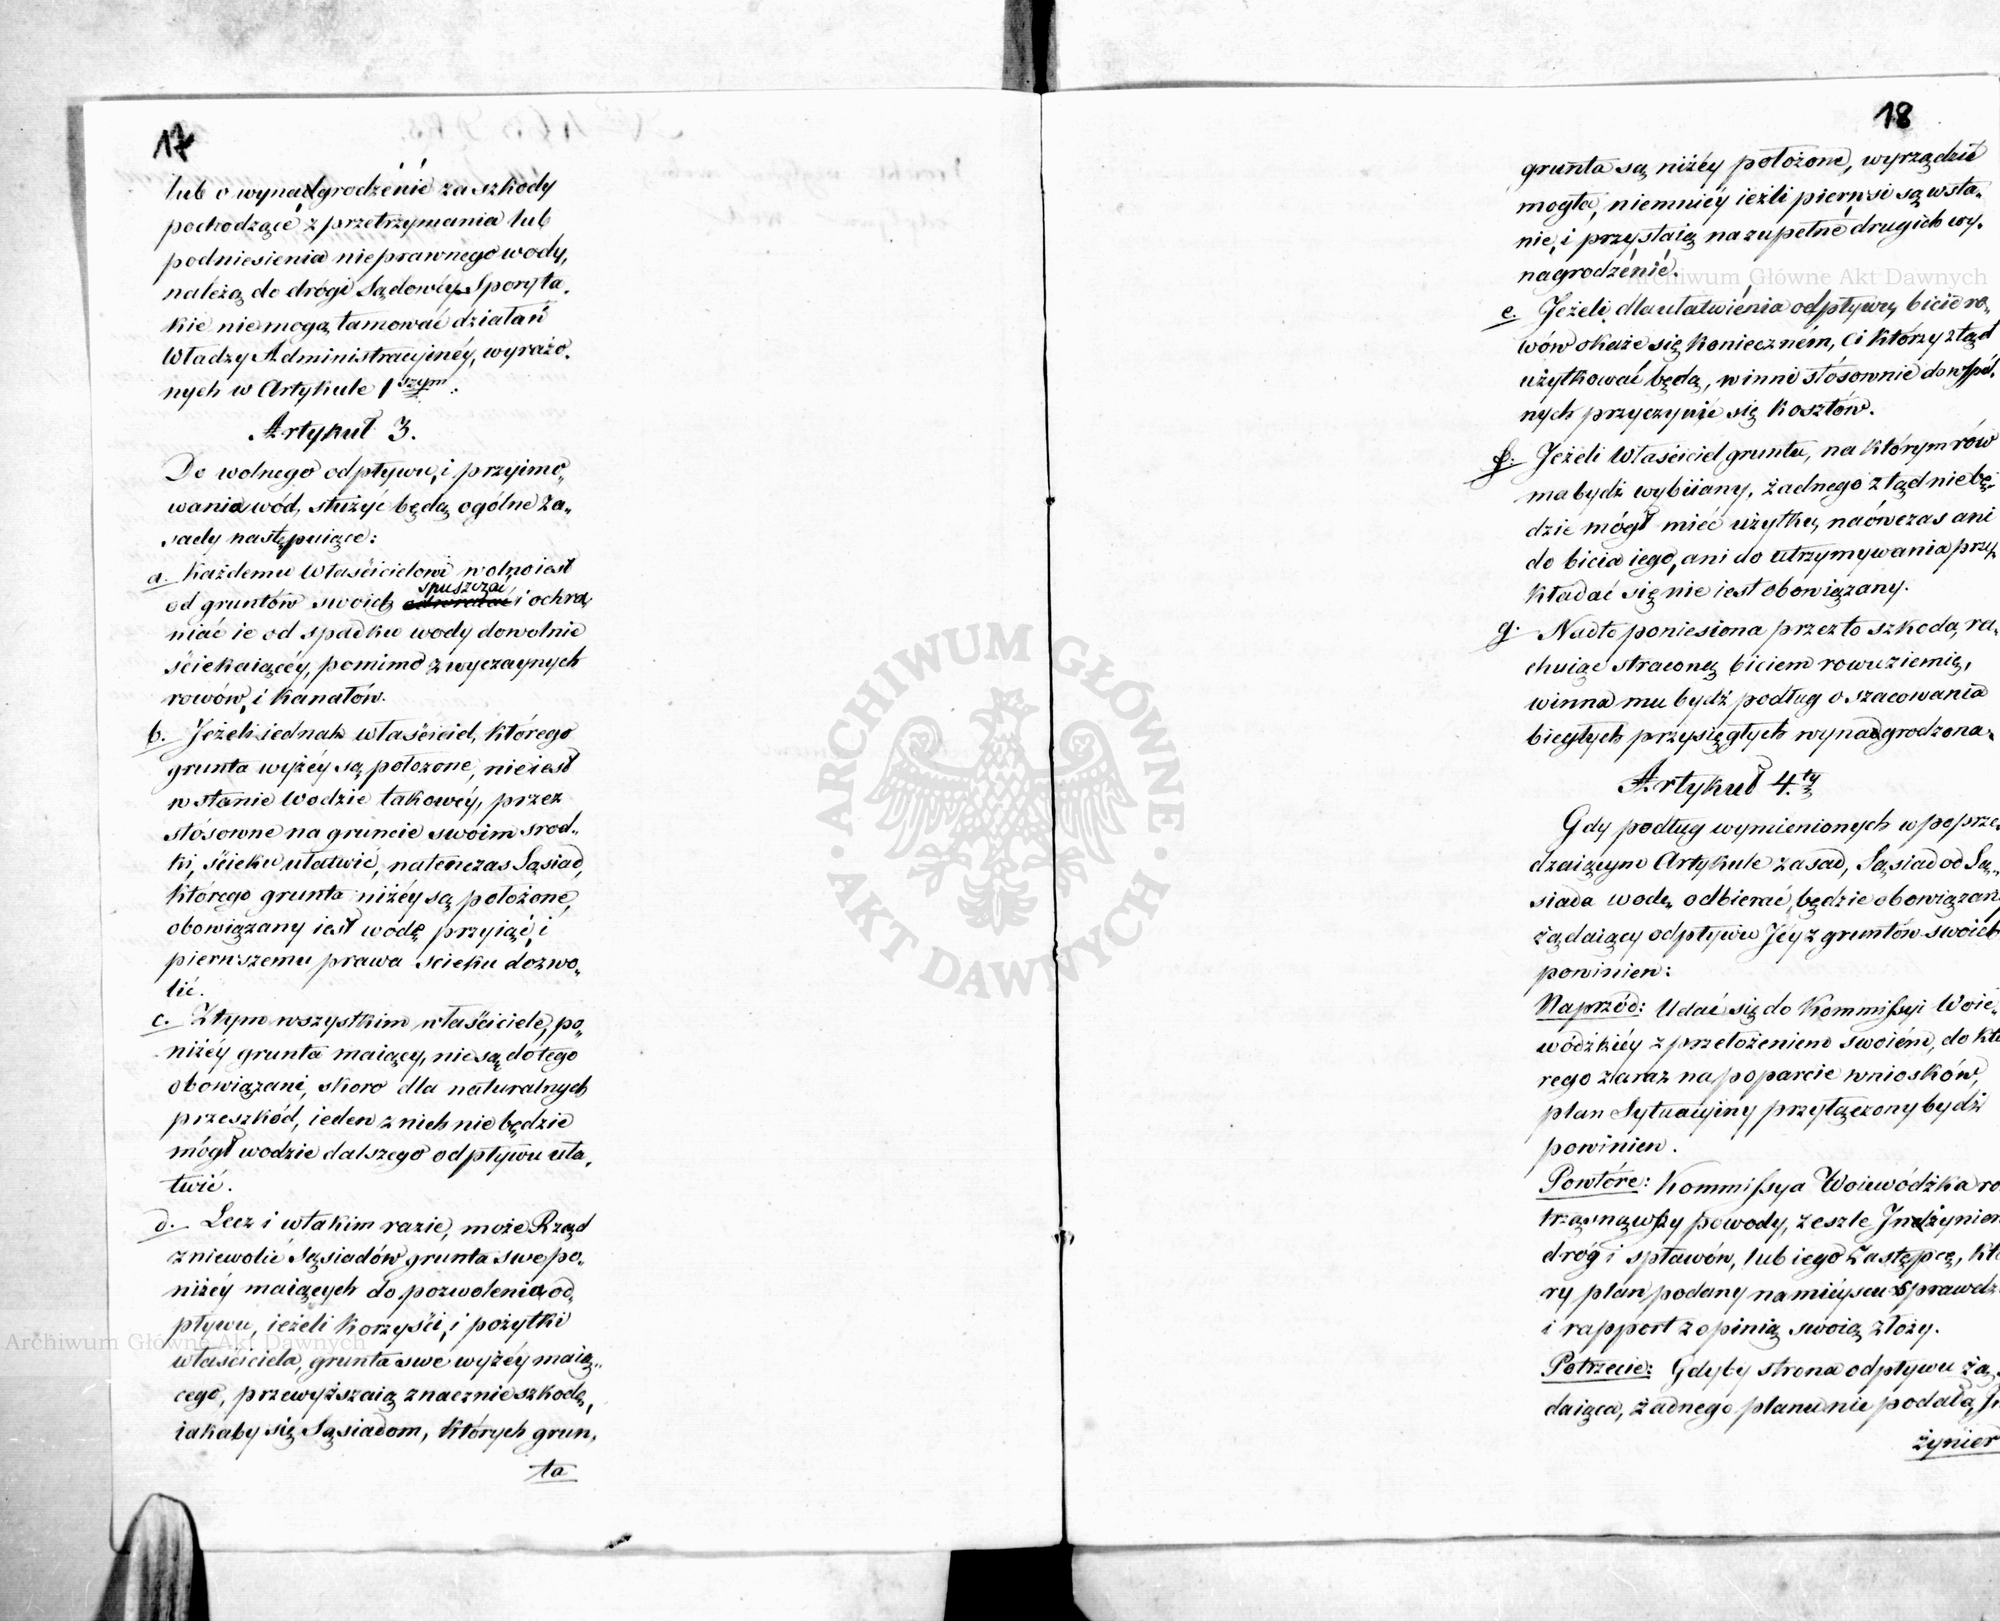 17
lub o wynadgrodzénié za szkody
pochodzącé z przetrzymania lub
podniesienia nieprawnego wody,
należą do drógi Sądowéy. Spory ta-
kie niemogą tamować działań
Władzy Administracyinéy, wyrażo-
nych w Artykule 1szym.
Artykuł 3.
Do wolnego odpływu, i przyimo-
wania wód, służyć będą ogólne za-
sady następuiące:
a. Każdemu Właścicielowi wolno iest
od gruntów swoich spuszczać i ochra-
niać ie od spadku wody dowolnie
ściekaiącéy, pomimo zwyczaynych
rowów, i kanałów.
b. Jeżeli iednak właściciel, którego
grunta wyżéy są położone, nie iest
w stanie wodzie takowéy, przez
stósowne na gruncie swoim srod-
ki, ścieku ułatwić, natenczas Sąsiad,
którego grunta niżéy są położone,
obowiązany iest wodę przyiąć, i
pierwszemu prawa scieku dozwo-
lić.
c. Z tym wszystkim właściciele, po-
niżéy grunta maiący, nie są do tego
obowiązani, skoro dla naturalnych
przeszkód, ieden z nich nie będzie
mógł wodzie dalszego odpływu uła-
twić.
d. Lecz i w takim razie, może Rząd
zniewolić Sąsiadów grunta swe po-
niżéy maiących do pozwolenia od-
pływu, ieżeli korzyści, i pożytki
właściciela, grunta swe wyżéy maią-
cego, przewyższaią znacznie szkodę,
iakaby się Sąsiadom, których grun-
ta
18
grunta są niżéy położone, wyrządzić
mogła, niemniéy ieżli pierwsi są w sta-
nie, i przystaią na zupełné drugich wy-
nagrodzénié.
e. Jeżeli dla ułatwiénia odpływu, bicie ro-
wów okaże się koniecznem, ci którzy ztąd
użytkować będą, winni stósownie do wspól-
nych przyczynić się kosztów.
f. Jeżeli Właściciel gruntu, na którym rów
ma bydź wybiiany, żadnego ztąd nie bę-
dzie mógł mieć użytku, naówczas ani
do bicia iego, ani do utrzymywania przy-
kładać się nie iest obowiązany.
g. Nadto poniesiona przez to szkoda, ra-
chuiąc straconą biciem rowu ziemię,
winna mu bydź podług oszacowania
biegłych przysięgłych wynadgrodzona.
Artykuł 4.ty
Gdy podług wymienionych w poprze-
dzaiącym Artykule zasad, Sąsiad od Są-
siada wodę odbierać, będzie obowiązany
żądaiący odpływu Jéy z gruntów swoich
powinien:
Naprzód: Udać się do Kommissyi Woie-
wódzkiéy z przełożeniem swoiém, do któ
rego zaraz na poparcie wniosków,
plan Sytuacyiny przyłączony bydź
powinien.
Powtóre: Kommissya Woiewódzka ro
trząsnąwszy powody, zeszle Inżynien
dróg i spławów, lub iego Zastępcę, któ
ry plan podany na miéyscu sprawdz
i rapport z opinią swoią złoży.
Potrzecie: Gdyby strona odpływu żą-
daiąca, żadnego planu nie podała, In
żynier
ARCHIWUM GŁÓWNE · AKT DAWNYCH ·
Archiwum Główne Akt Dawnych
Archiwum Główne Akt Dawnych